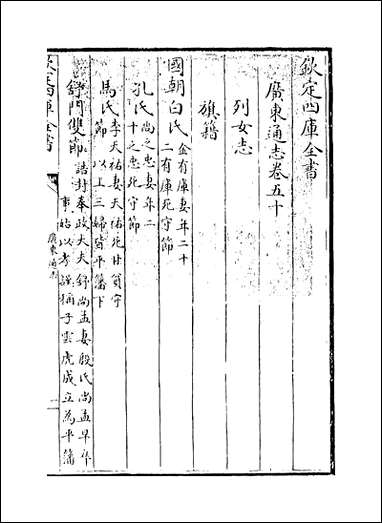 欽定四庫全書
廣東通志卷五十
列女志
旗籍
國朝白氏 金有庫妻年二十
二有庫死守節
孔氏 尚之忠妻年二
十之忠死守節
馬氏 李天祐妻天祐死甘貧守
節 以上三婦皆平藩下
舒門雙節 誥封奉政大夫舒尚孟妻殷氏尚孟早卒
事姑以孝謹稱子雲虎成立為平藩
廣東通志